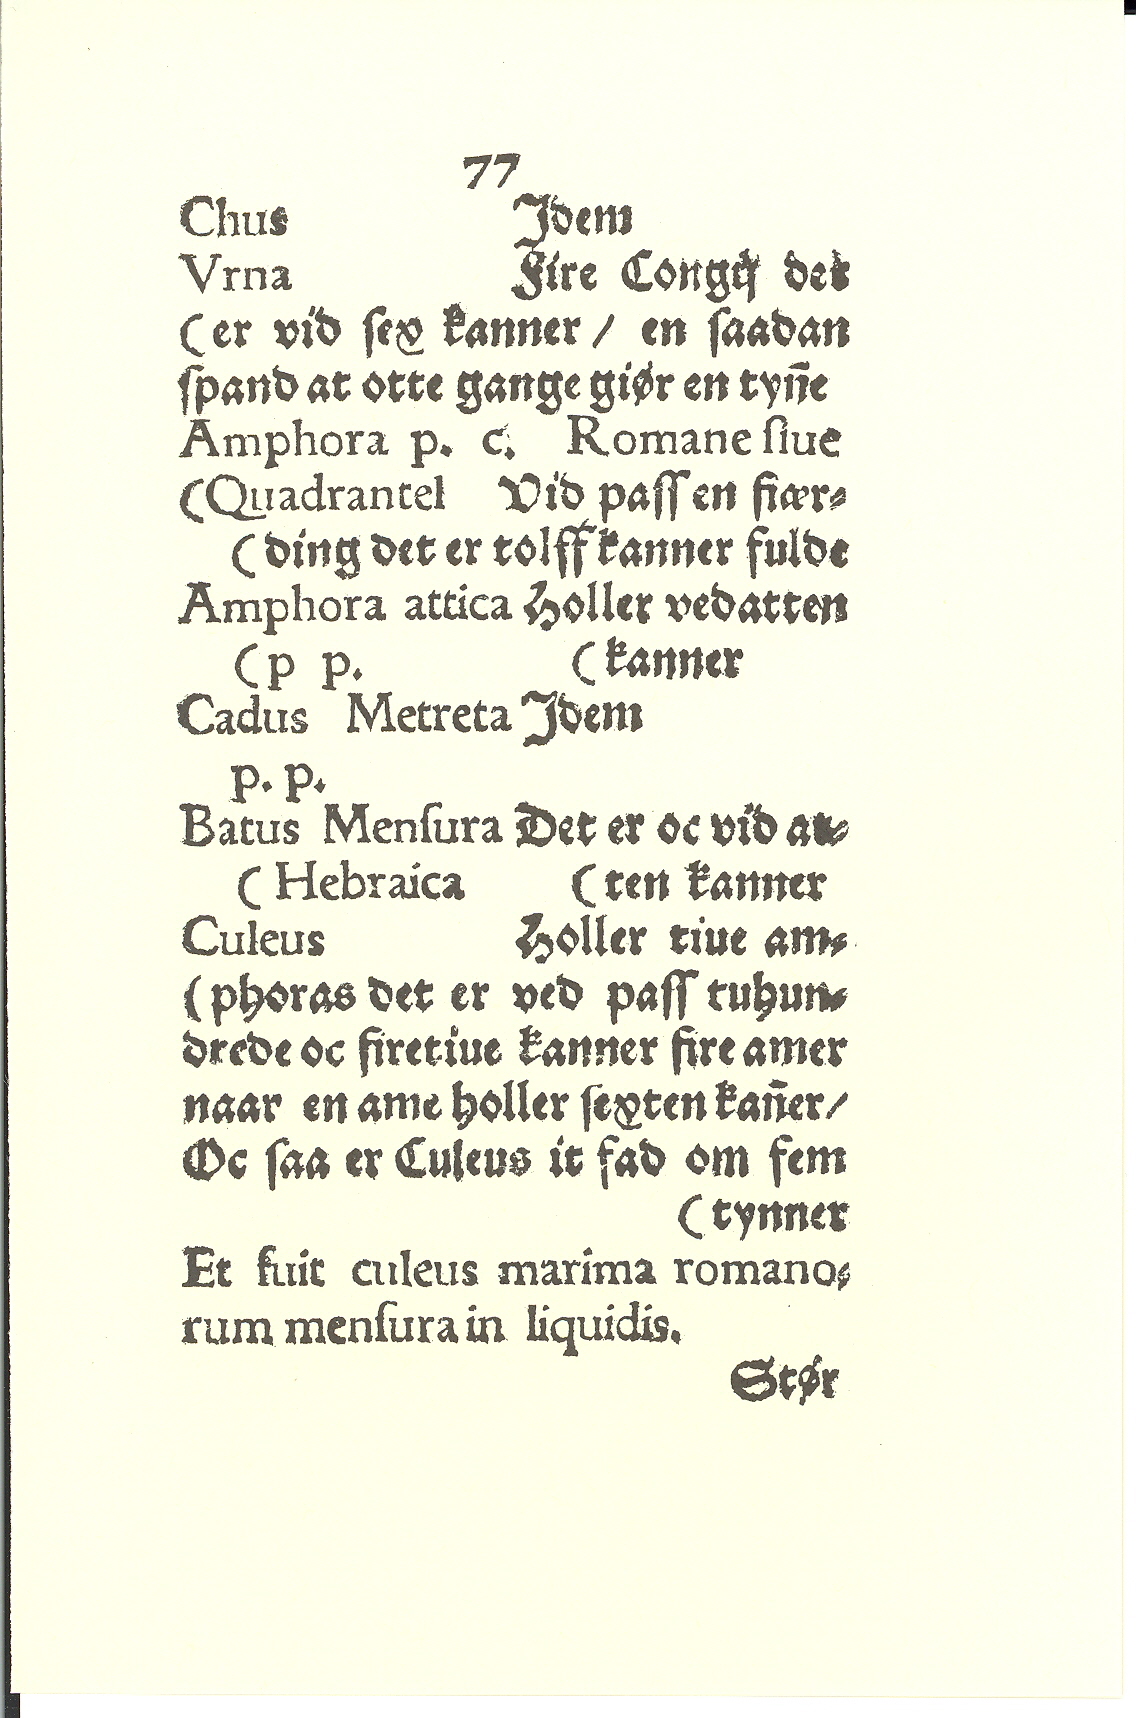 77
Chus Jdem
Vrna Fire Congij det
(er vid ſex kanner / en ſaadan
ſpand at otte gange giør en tyn̄e
Amphora p. c. Romane ſiue
(Quadrantel Vid paſſ en fiær⸗
(ding det er tolff kanner fulde
Amphora attica Holler ved atten
(p p. (kanner
Cadus Metreta Jdem
p. p.
Batus Menſura Det er oc vid at⸗
(Hebraica (ten kanner
Culeus Holler tiue am⸗
(phoras det er ved paſſ tuhun⸗
drede oc firetiue kanner fire amer
naar en ame holler ſexten kan̄er/
Oc ſaa er Culeus it fad om fem
(tynner
Et fuit culeus marima romano⸗
rum menſura in liquidis.
Stør